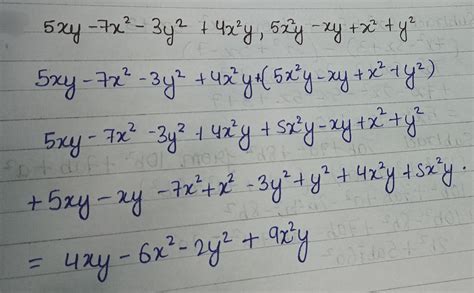 5xy - 7x² - 3y² + 4x²y, 5x²y - xy + x² + y²
5xy - 7x² - 3y² + 4x²y + (5x²y - xy + x² + y²)
5xy - 7x² - 3y² + 4x²y + 5x²y - xy + x² + y²
+ 5xy - xy - 7x² + x² - 3y² + y² + 4x²y + 5x²y.
= 4xy - 6x² - 2y² + 9x²y